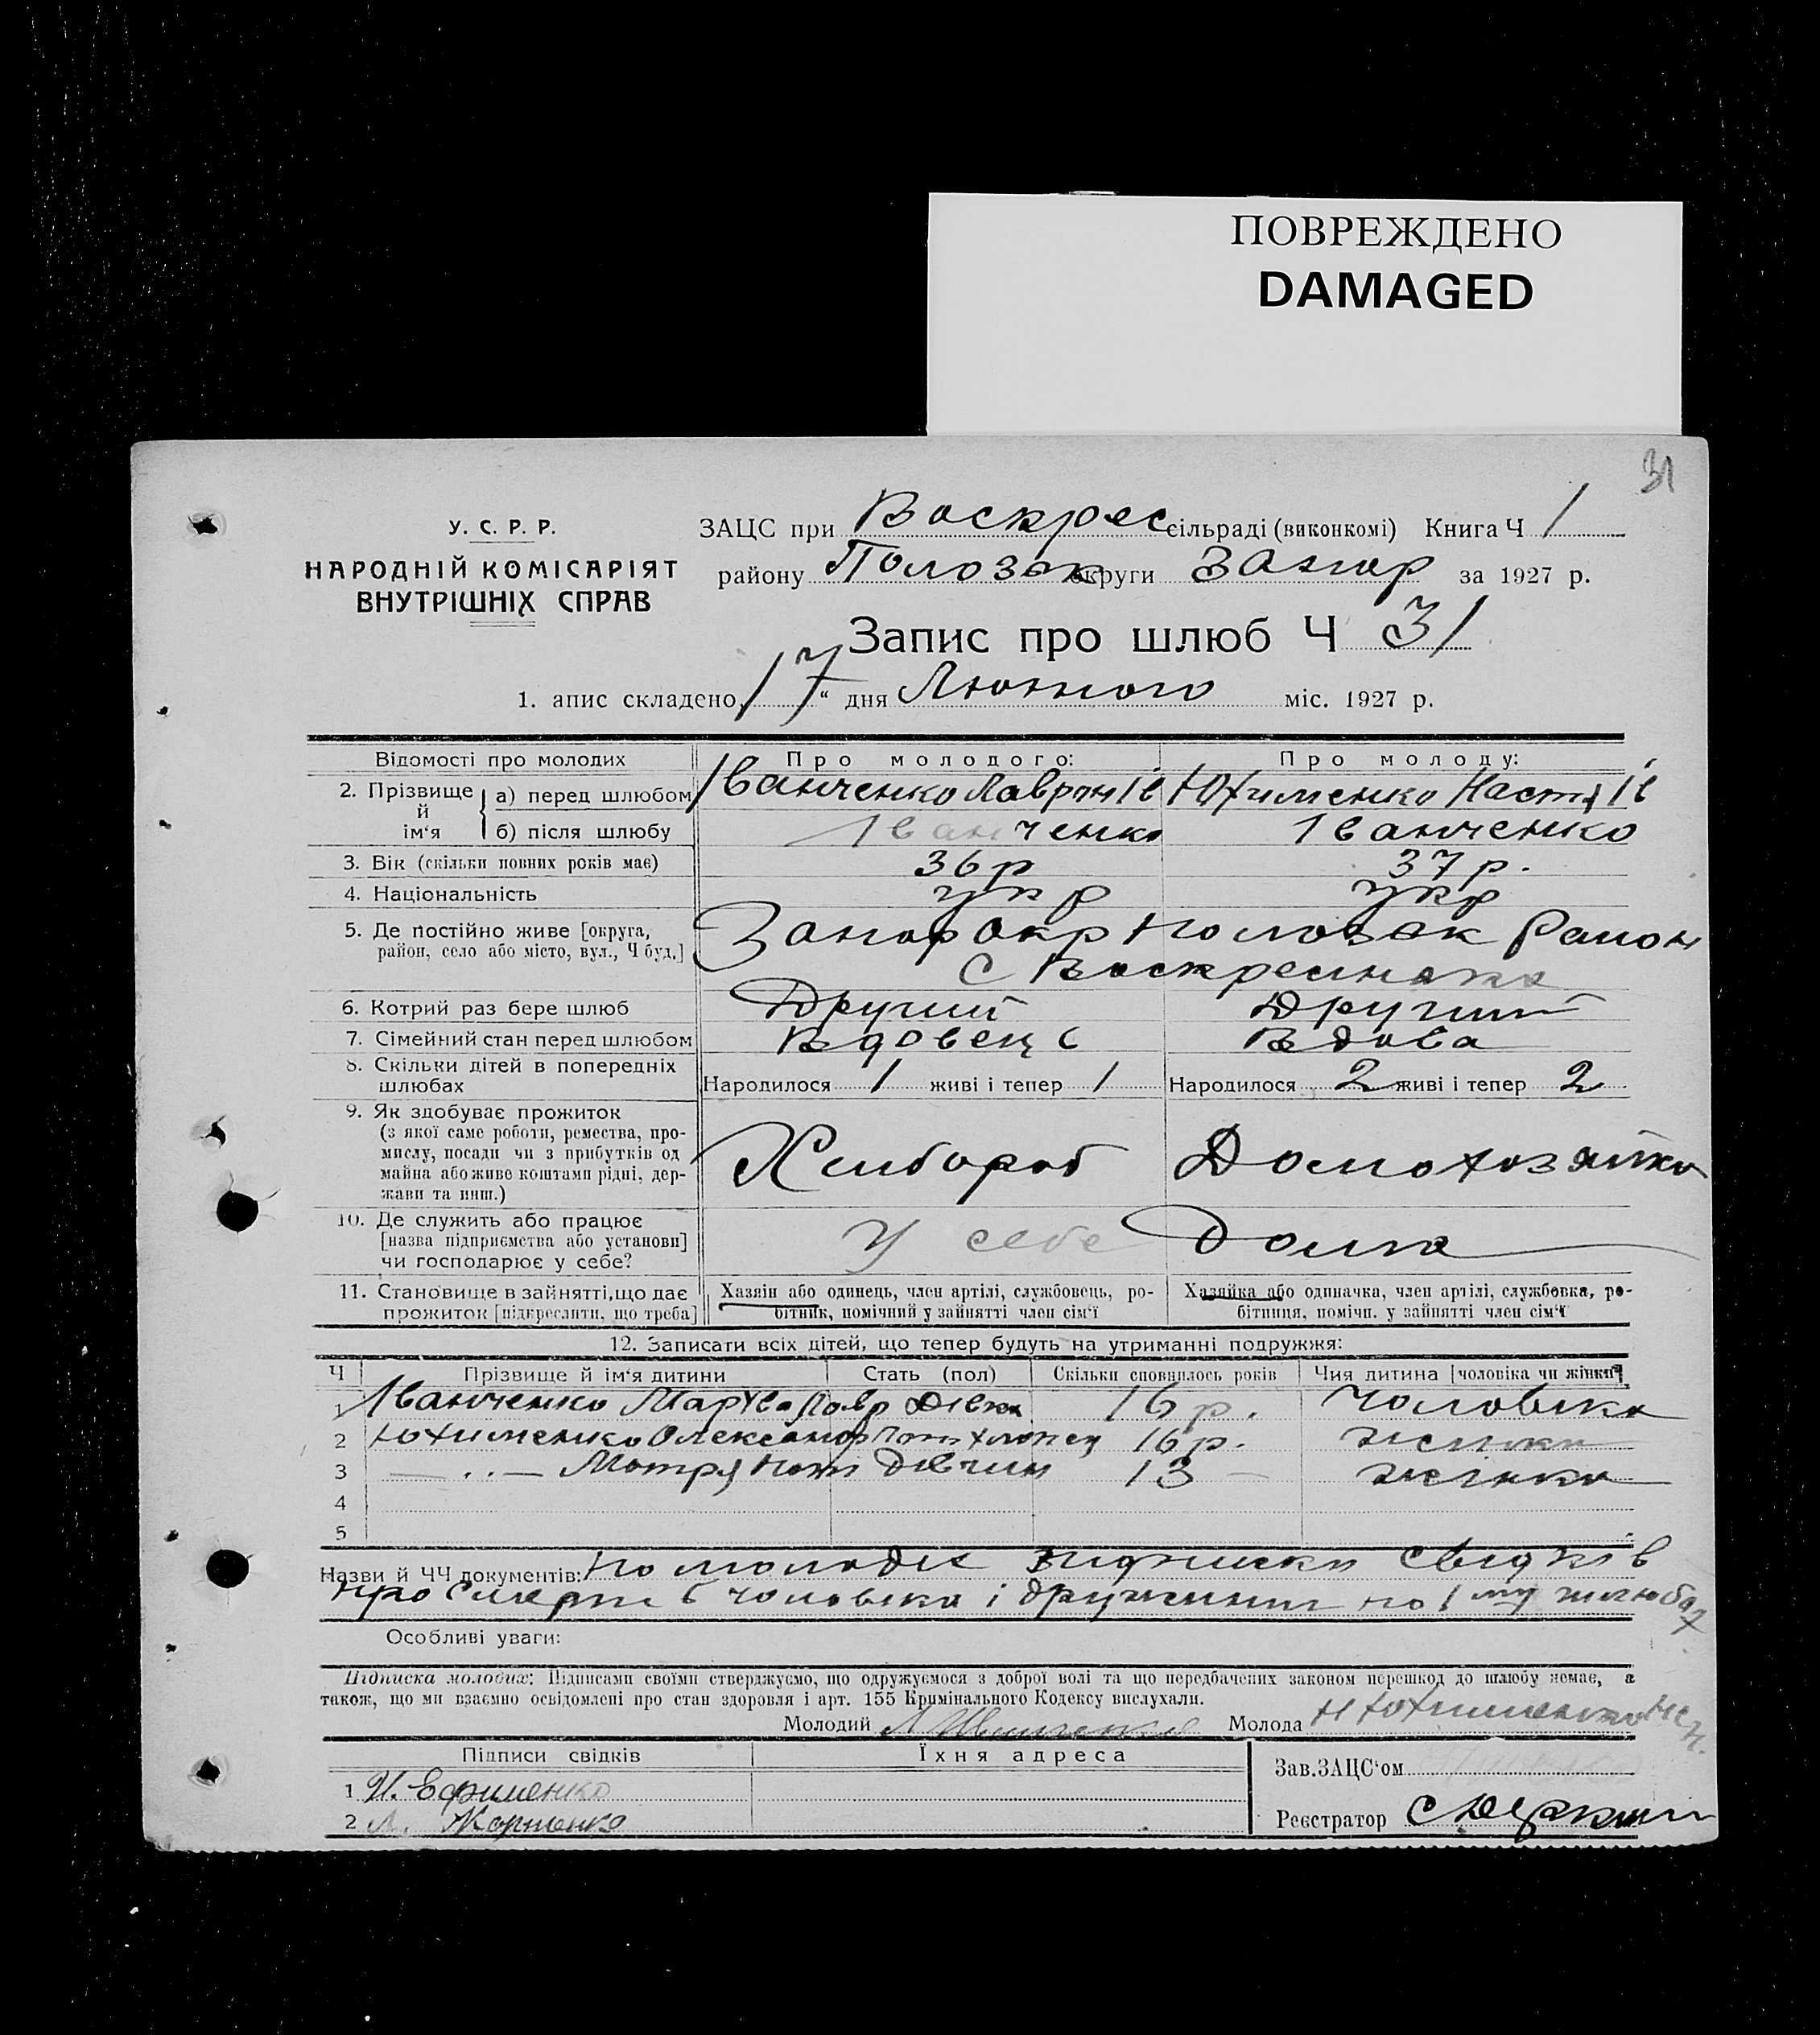 ПОВРЕЖДЕНО
DAMAGED
31
У. С. Р. Р.
НАРОДНІЙ КОМІСАРІЯТ
ВНУТРІШНІХ СПРАВ
ЗАЦС при Воскрес сільраді (виконкомі) Книга Ч 1
району Полозьк округи Запор за 1927 р.
Запис про шлюб Ч 31
1. апис складено „17“ дня Лютого міс. 1927 р.
Відомості про молодих Про молодого: Про молоду:
2. Прізвище й ім‘я
а) перед шлюбом Іванченко Лаврон Ів Юхименко Настя Ів
б) після шлюбу Іванченко Іванченко
3. Вік (скільки повних років має) 36 р 37 р.
4. Національність укр укр
5. Де постійно живе [округа, Запор Окр Полозьк Район
район, село або місто, вул., Ч буд.] с Воскресенка
6. Котрий раз бере шлюб Другий Другий
7. Сімейний стан перед шлюбом Вдовець Вдова
8. Скільки дітей в попередніх
шлюбах Народилося 1 живі і тепер 1 Народилося 2 живі і тепер 2
9. Як здобуває прожиток
(з якої саме роботи, ремества, про-
мислу, посади чи з прибутків од Хлібороб Домохозяйка
майна або живе коштами рідні, дер-
жави та инш.)
10. Де служить або працює
[назва підприємства або установи] У себе Дома
чи господарює у себе?
11. Становище в зайнятті, що дає Хазяін або одинець, член артілі, службовець, ро- Хазяйка або одиначка, член артілі, службовка, ро-
прожиток [підкреслити, що треба] бітник, помічний у зайнятті член сім‘ї бітниця, помічн. у зайнятті член сім‘ї
12. Записати всіх дітей, що тепер будуть на утриманні подружжя:
Ч Прізвище й ім‘я дитини Стать (пол) Скільки сповнилось років Чия дитина [чоловіка чи жінки]
1 Іванченко Лавр Дівка 16 р. Чоловіка
2 Юхименко Олександр хлопец 16 р. жінки
3 — „ — Мотря Дівчин 13 — жінки
4
5
Назви й ЧЧ документів: свідків
про смерть б чоловіка і дружини по 1 му шлюбах
Особливі уваги:
Підписка молодих: Підписами своїми стверджуємо, що одружуємося з доброї волі та що передбачених законом перешкод до шлюбу немає, а
також, що ми взаємно освідомлені про стан здоровля і арт. 155 Кримінального Кодексу вислухали.
Молодий Л Іванченко Молода Н Юхименко
Підписи свідків Їхня адреса Зав. ЗАЦС‘ом
1 И. Ефименко
2 Л. Корниенко Реєстратор